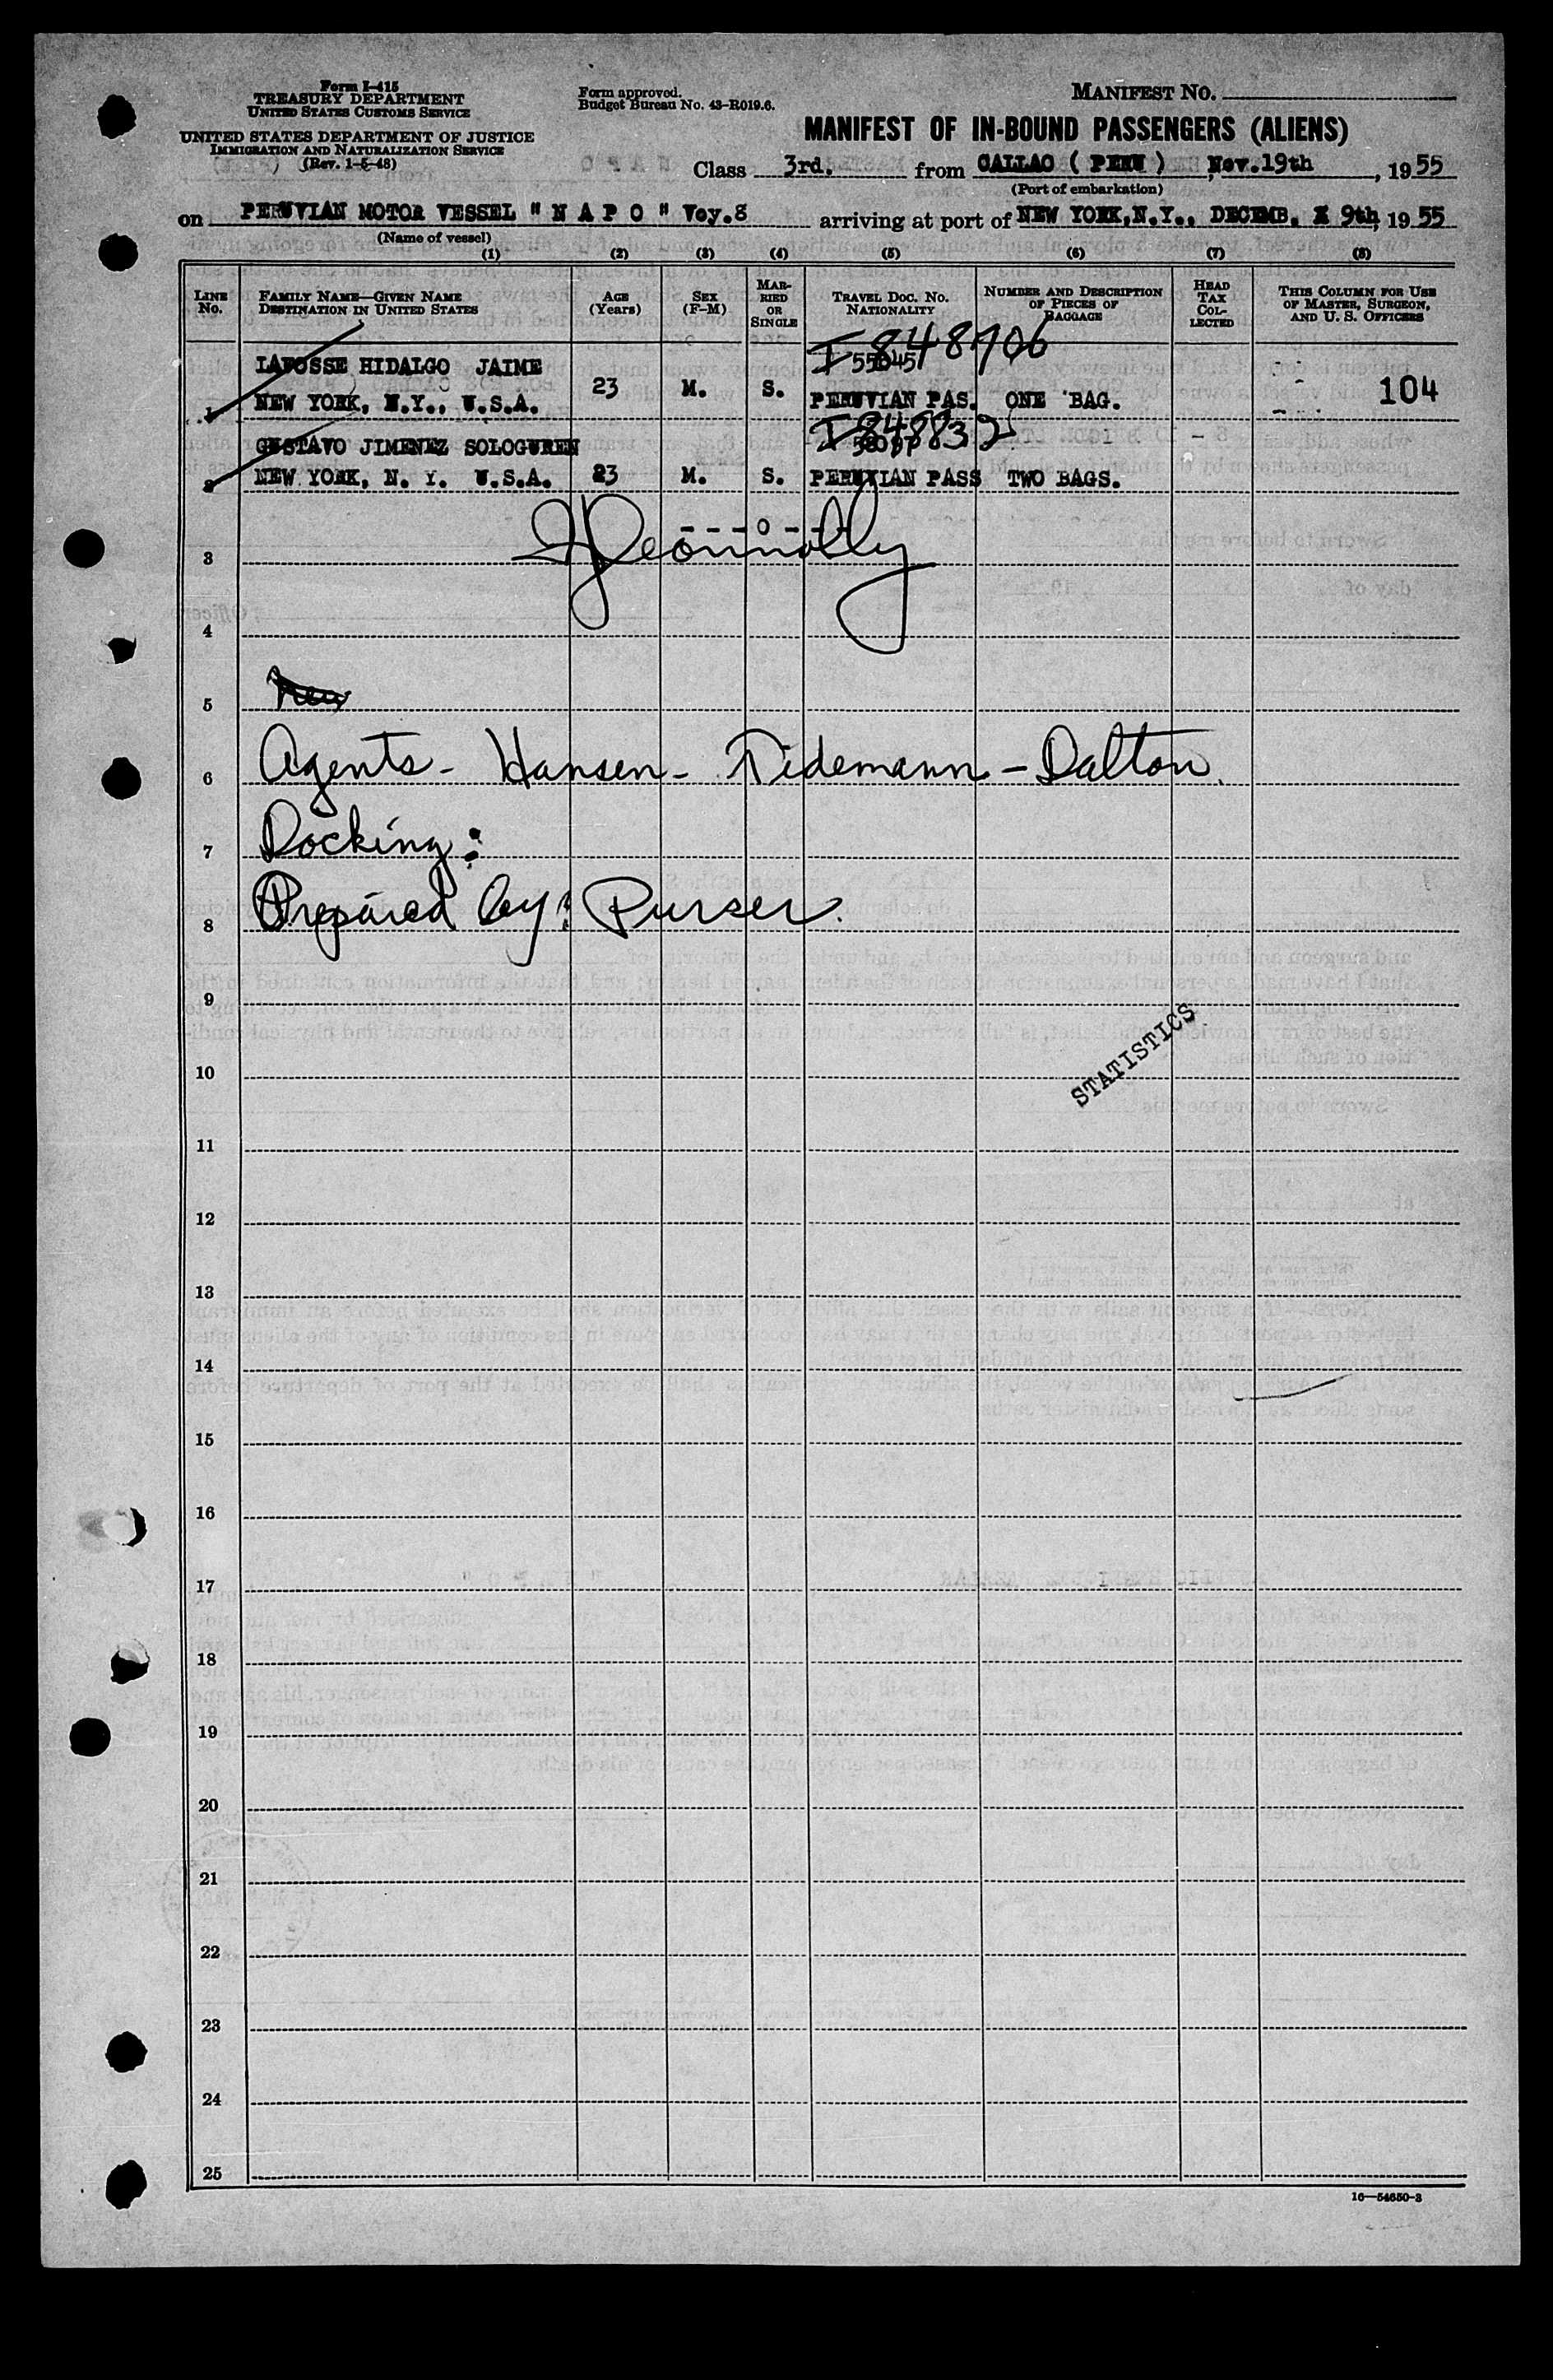 Form I-415
TREASURY DEPARTMENT
UNITED STATES CUSTOMS SERVICE
UNITED STATES DEPARTMENT OF JUSTICE
IMMIGRATION AND NATURALIZATION SERVICE
(Rev. 1-5-48)
Form approved.
Budget Bureau No. 43-R019.6.
MANIFEST NO.
MANIFEST OF IN-BOUND PASSENGERS (ALIENS)
Class 3rd. from CALLAO ( PERU ) , Nov.19th , 1955
(Port of embarkation)
on PERUVIAN MOTOR VESSEL " N A P O " Voy.8 arriving at port of NEW YORK,N.Y., DECEMB. X 9th, 1955
(Name of vessel)
(1) (2) (3) (4) (5) (6) (7) (8)
LINE No. FAMILY NAME—GIVEN NAME DESTINATION IN UNITED STATES AGE (Years) SEX (F-M) MARRIED OR SINGLE TRAVEL DOC. NO. NATIONALITY NUMBER AND DESCRIPTION OF PIECES OF BAGGAGE HEAD TAX COLLECTED THIS COLUMN FOR USE OF MASTER, SURGEON, AND U. S. OFFICERS
I 848906
LAFOSSE HIDALGO JAIME 55045
1 NEW YORK, N.Y., U.S.A. 23 M. S. PERUVIAN PAS. ONE BAG. 104
I 848832
GUSTAVO JIMENEZ SOLOGUREN
2 NEW YORK, N. Y. U.S.A. 23 M. S. PERUVIAN PASS TWO BAGS.
- - - o - - -
3
4
5
6 Agents - Hansen - Tidemann - Dalton.
7 Docking:
8 Prepared by: Purser.
9
STATISTICS
10
11
12
13
14
15
16
17
18
19
20
21
22
23
24
25
16—54650-3